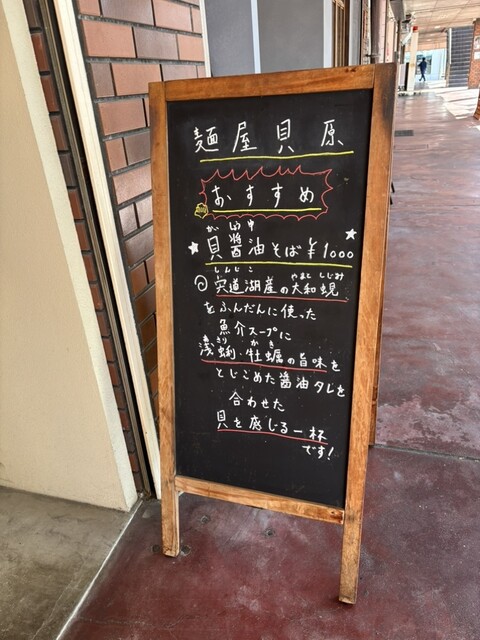 麺屋貝原
おすすめ
かい じょうゆ
貝醤油そば ¥1000
しんじこ やまとしじみ
宍道湖産の大和蜆
をふんだんに使った
魚介スープに
あさり かき
浅蜊・牡蠣の旨味を
とじこめた醤油タレを
合わせた
貝を感じる一杯
です!